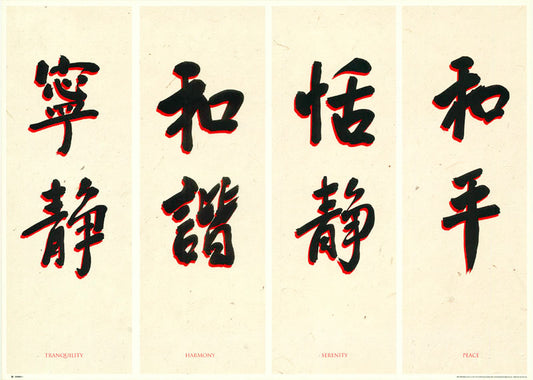 寧靜
和諧
恬靜
和平
TRANQUILITY
HARMONY
SERENITY
PEACE